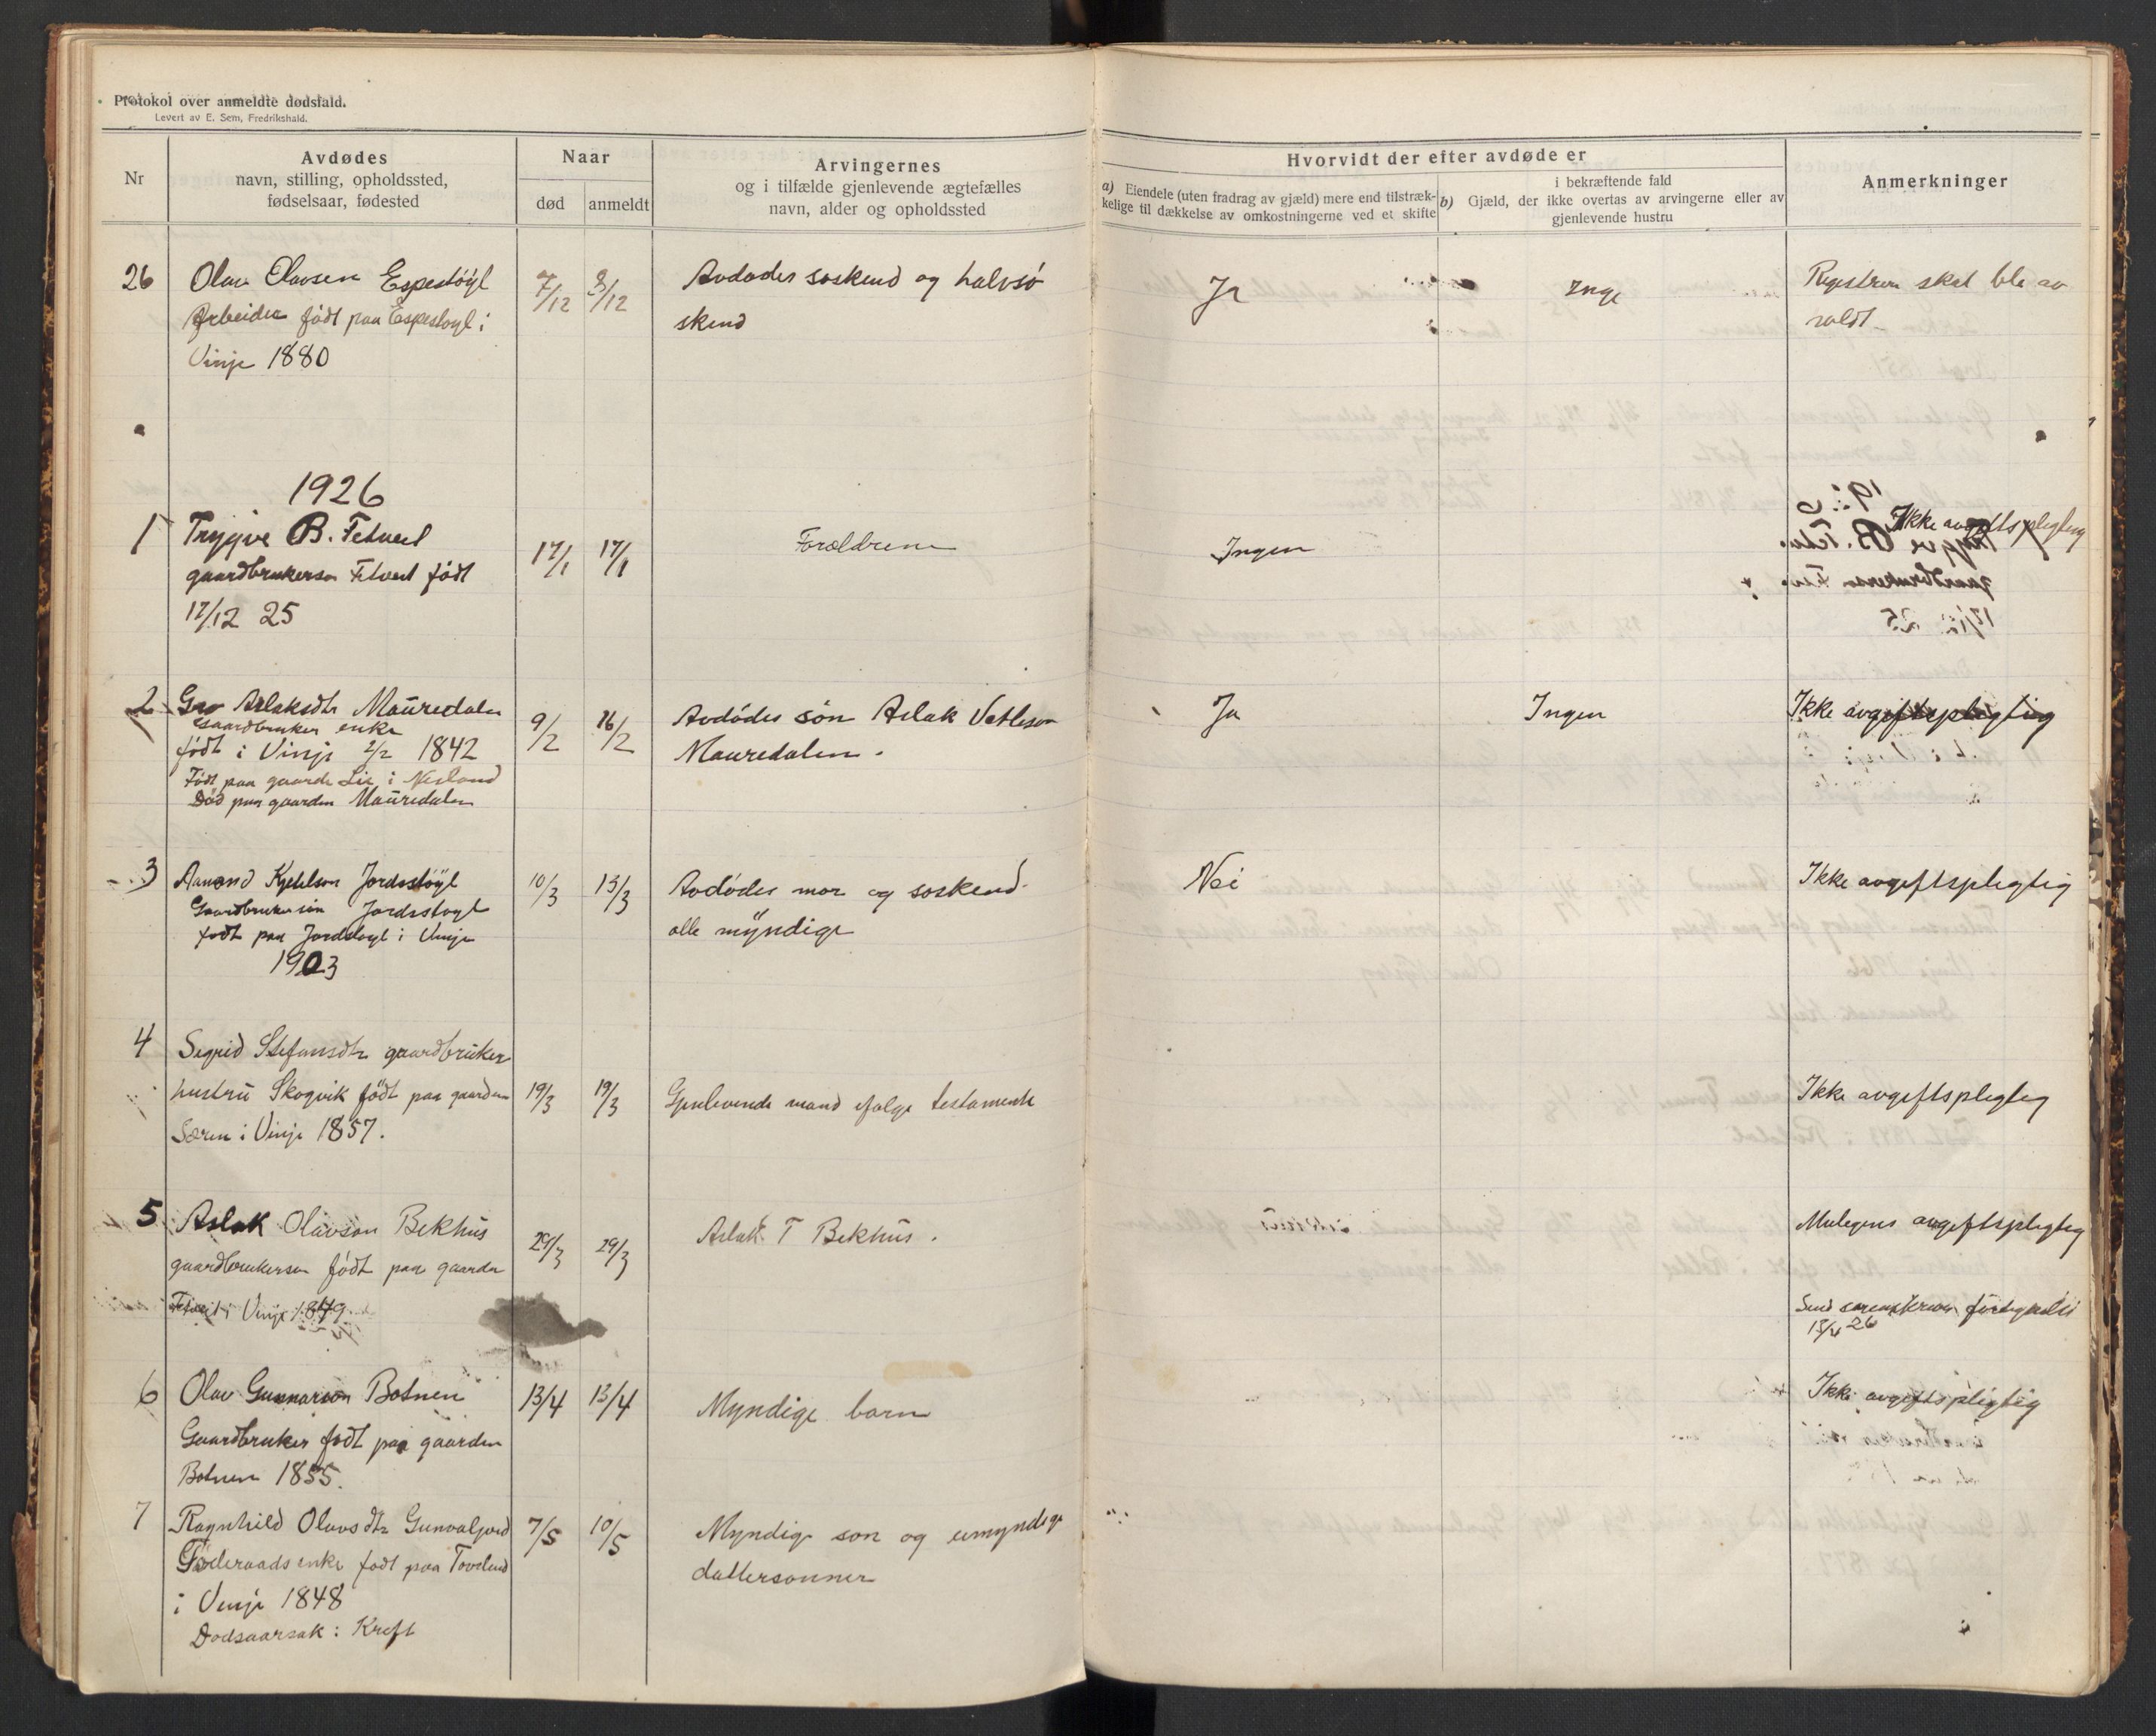 Protokol over anmeldte dødsfald.
Levert av E. Sem, Fredrikshald.
Nr
Avdødes
navn, stilling, opholdssted,
fødselsaar, fødested
Naar
død
anmeldt
Arvingernes
og i tilfælde gjenlevende ægtefælles
navn, alder og opholdssted
Hvorvidt der efter avdøde er
a) Eiendele (uten fradrag av gjæld) mere end tilstræk-
kelige til dækkelse av omkostningerne ved et skifte
i bekræftende fald
b) Gjæld, der ikke overtas av arvingerne eller av
gjenlevende hustru
Anmerkninger
26
Olav Olavsen Espestøyl
Arbeider født paa Espestøyl i
Vinje 1880
7/12
8/12
Avdødes søskend og halvsø
skend
Ja
Inge
skal ble av
holdt
1926
1
Trygve B. Fetveit
gaardbrukerson Fetveit født
17/12 25
17/1
17/1
Forældrene
Ingen
Ikke avgiftspligtig
2
Gro Aslaksdtr Mauredalen
Gaardbruker enke
født i Vinje 2/2 1842
Født paa gaarde Lie i Nesland
Død paa gaarden Mauredalen
9/2
16/2
Avdødes søn Aslak Vetleson
Mauredalen.
Ja
Ingen
Ikke avgiftspligtig
3
Aanund Kjetilson Jordsstøyl
Gaardbrukersøn Jordsstøyl
født paa Jordstøyl i Vinje
1903
10/3
15/3
Avdødes mor og søskend
alle myndige
Nei
Ikke avgiftspligtig
4
Sigrid Stefansdtr gaardbruker
hustru Skogvik født paa gaarden
Særen i Vinje 1857.
19/3
19/3
Gjenlevende mand ifølge testamente
Ikke avgiftspligtig
5
Aslak Olavson Bekhus
gaardbrukerson født paa gaarden
Fetveit i Vinje 1849.
29/3
29/3
Aslak T Bekhus.
Mulegens avgiftspligtig
Send sorenskriveren
13/4 26
6
Olav Gunnarson Botnen
Gaardbruker født paa gaarden
Botnen 1855.
13/4
13/4
Myndige barn
Ikke avgiftspligtig
7
Ragnhild Olavsdtr Gunvaljord
Føderaads enke født paa Tovslund
i Vinje 1848
Dødsaarsak: Kreft
7/5
10/5
Myndige søn og umyndige
dattersønner